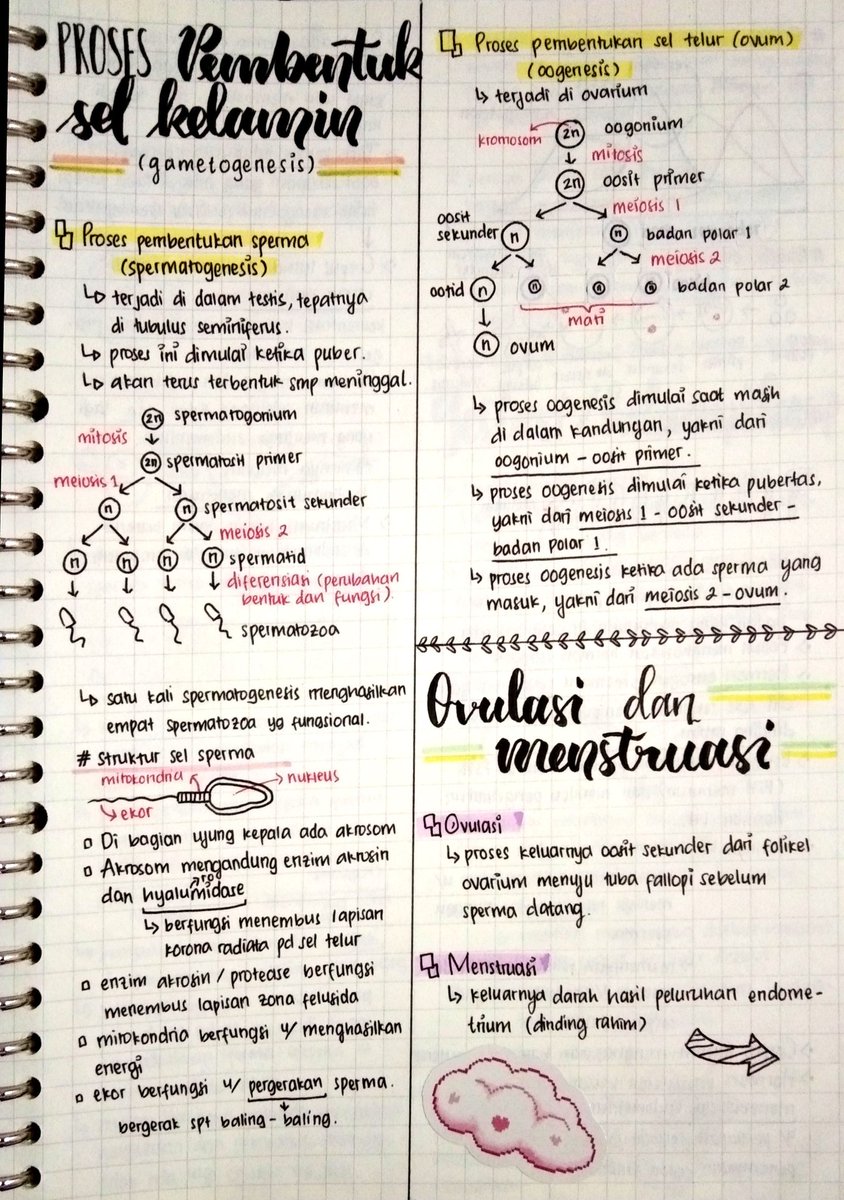 PROSES Pembentuk
sel kelamin
(gametogenesis)
Proses pembentukan sperma
(spermatogenesis)
↳ terjadi di dalam testis, tepatnya
di tubulus seminiferus.
↳ proses ini dimulai ketika puber.
↳ akan terus terbentuk smp meninggal.
2n spermatogonium
mitosis
2n spermatosit primer
meiosis 1
n n spermatosit sekunder
meiosis 2
n n n n spermatid
diferensiasi (perubahan
bentuk dan fungsi).
spermatozoa
↳ satu kali spermatogenesis menghasilkan
empat spermatozoa yg fungsional.
# struktur sel sperma
mitokondria
nukleus
ekor
Di bagian ujung kepala ada akrosom
Akrosom mengandung enzim akrosin
ro
dan hyalumidase
↳ berfungsi menembus lapisan
korona radiata pd sel telur
enzim akrosin / protease berfungsi
menembus lapisan zona felusida
mitokondria berfungsi u/ menghasilkan
energi
ekor berfungsi u/ pergerakan sperma.
bergerak spt baling-baling.
Proses pembentukan sel telur (ovum)
(oogenesis)
↳ terjadi di ovarium
kromosom 2n oogonium
mitosis
2n oosit primer
meiosis 1
oosit
sekunder n n badan polar 1
meiosis 2
ootid n n n n badan polar 2
mati
n ovum
↳ proses oogenesis dimulai saat masih
di dalam kandungan, yakni dari
oogonium - oosit primer.
↳ proses oogenesis dimulai ketika pubertas,
yakni dari meiosis 1 - oosit sekunder -
badan polar 1.
↳ proses oogenesis ketika ada sperma yang
masuk, yakni dari meiosis 2 - ovum.
Ovulasi dan
menstruasi
Ovulasi
↳ proses keluarnya oosit sekunder dari folikel
ovarium menuju tuba fallopi sebelum
sperma datang.
Menstruasi
↳ keluarnya darah hasil peluruhan endome-
trium (dinding rahim)